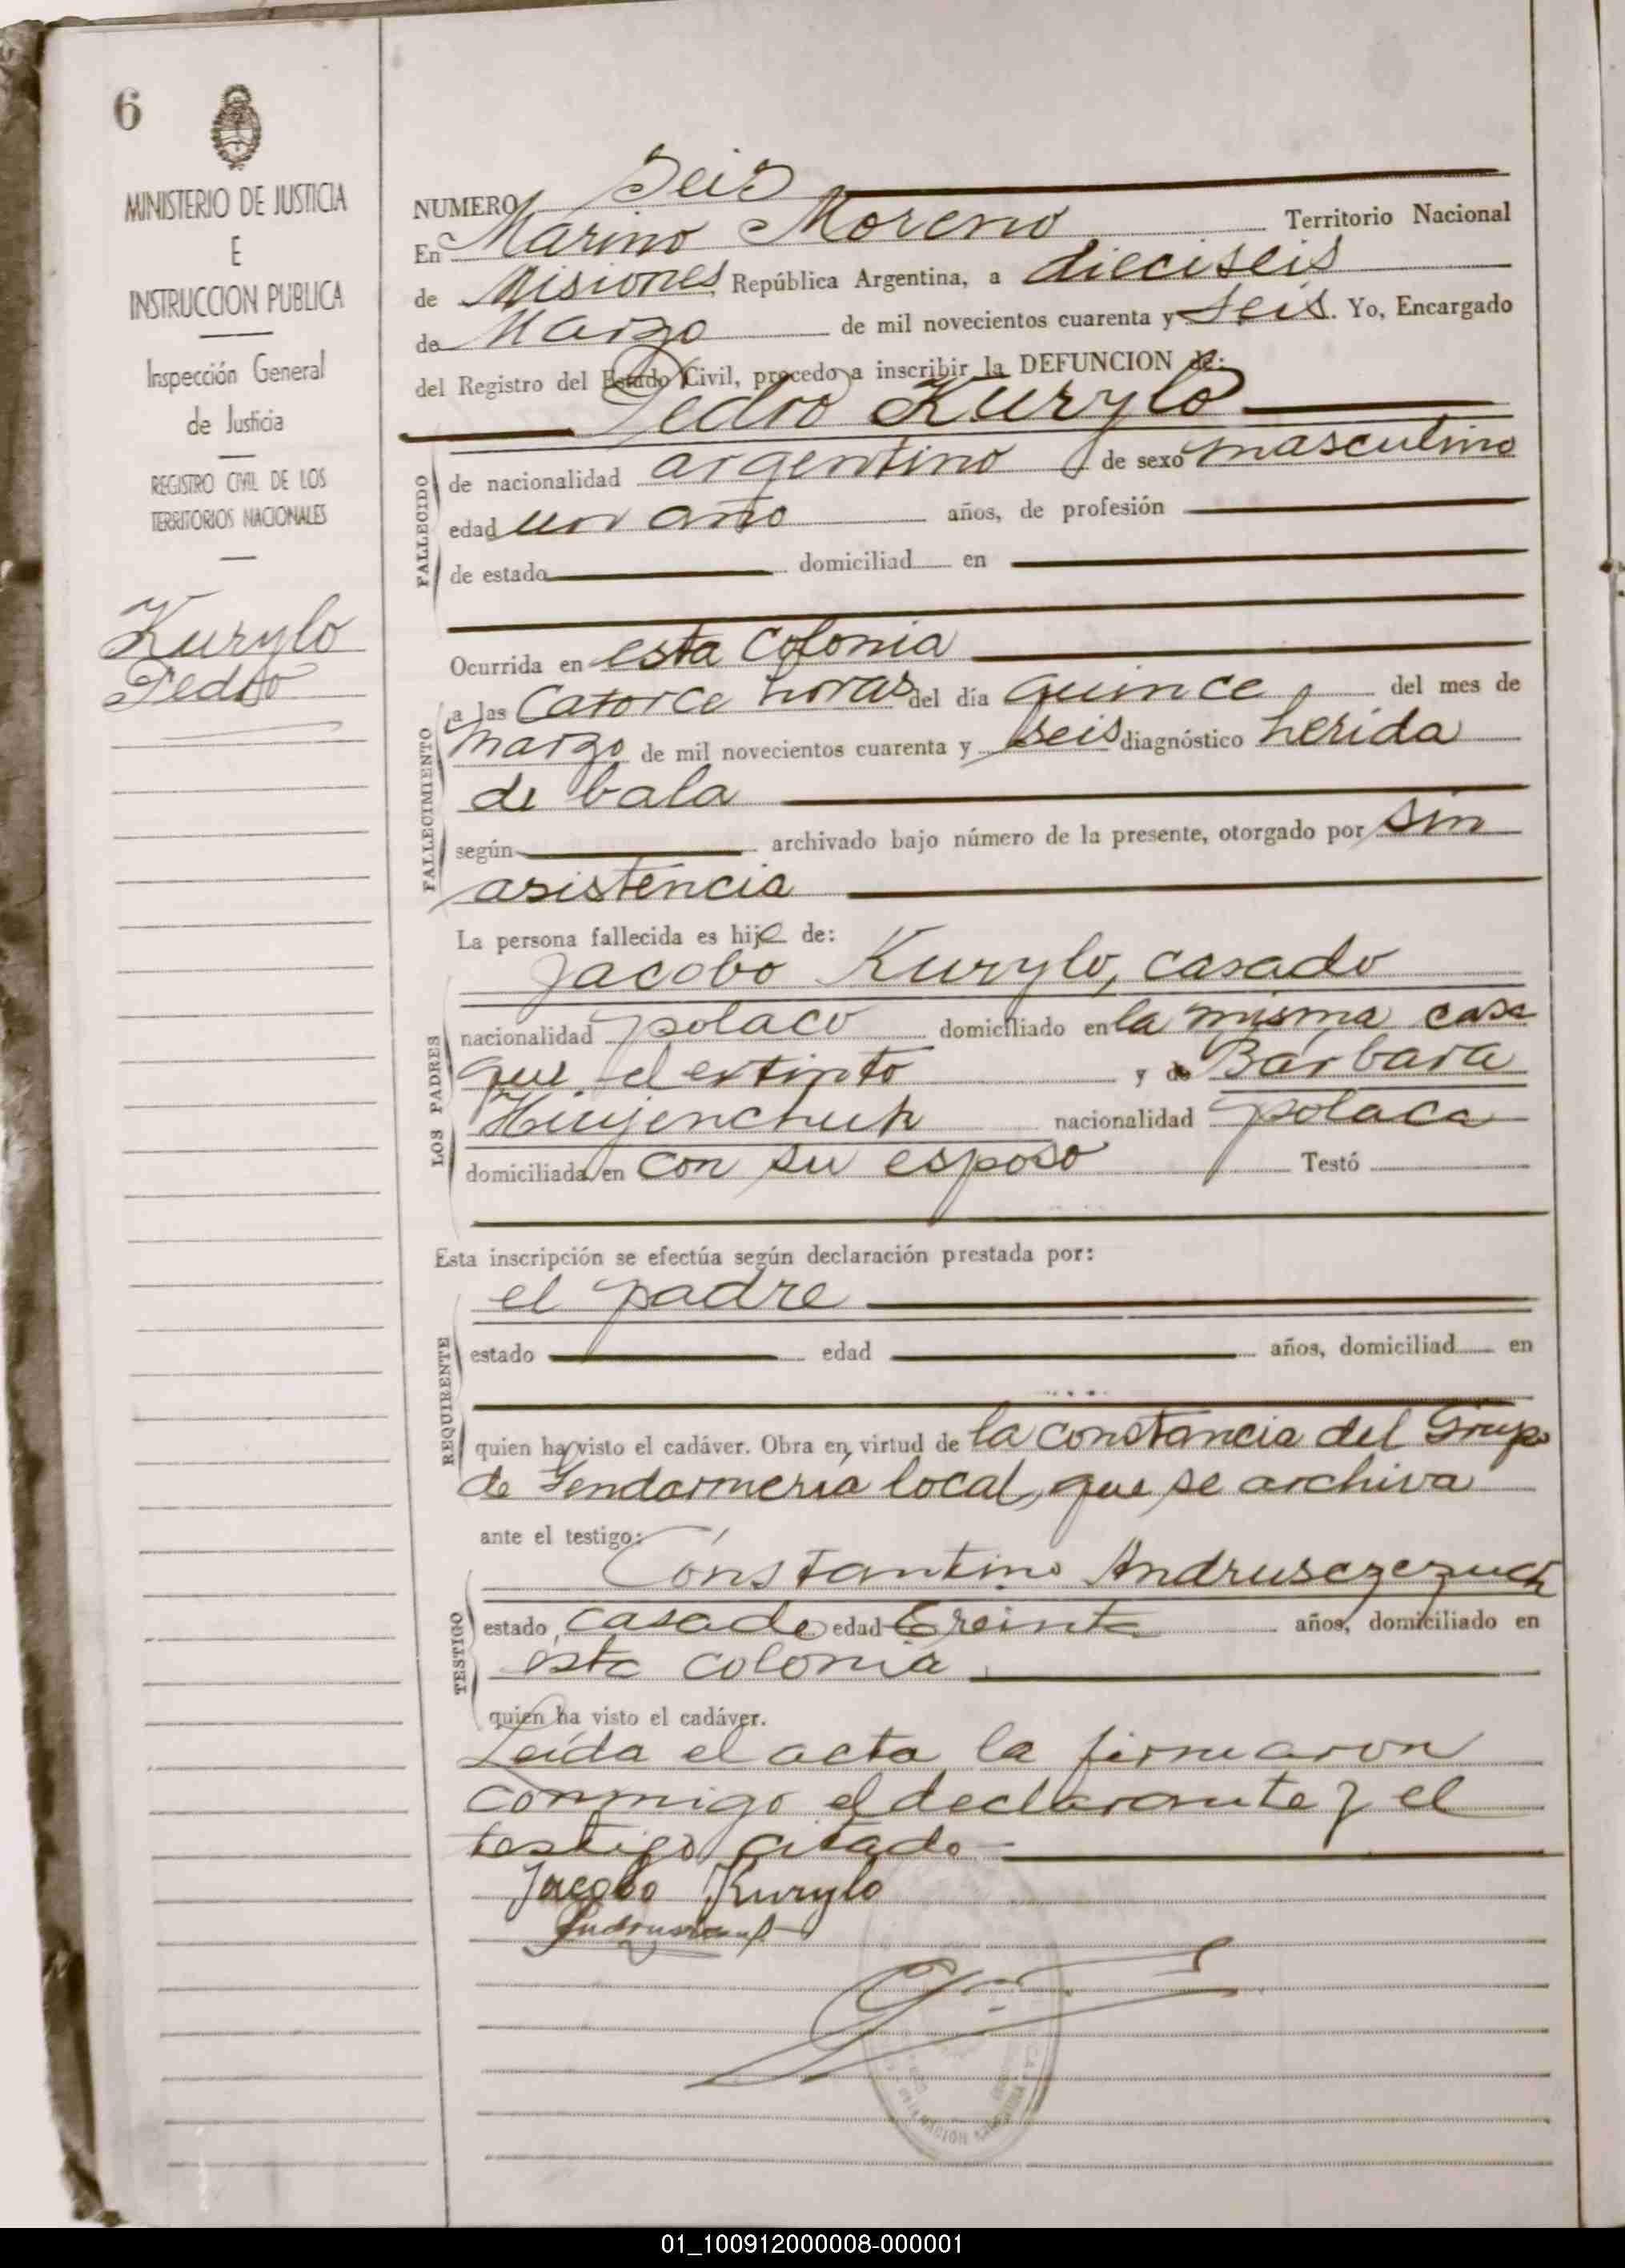 6
MINISTERIO DE JUSTICIA
E
INSTRUCCION PUBLICA
Inspección General
de Justicia
REGISTRO CIVIL DE LOS
TERRITORIOS NACIONALES
Kurylo
Pedro
NUMERO Seis
En Marino Moreno Territorio Nacional
de Misiones República Argentina, a dieciseis
de Marzo de mil novecientos cuarenta y seis. Yo, Encargado
del Registro del Estado Civil, procedo a inscribir la DEFUNCION de:
Pedro Kurylo
FALLECIDO
de nacionalidad argentino de sexo masculino
edad un año años, de profesión
de estado domiciliad en
Ocurrida en esta Colonia
FALLECIMIENTO
a las Catorce horas del día quince del mes de
marzo de mil novecientos cuarenta y seis diagnóstico herida
de bala
según archivado bajo número de la presente, otorgado por sin
asistencia
La persona fallecida es hijo de:
Jacobo Kurylo, casado
LOS PADRES
nacionalidad polaco domiciliado en la misma casa
que el extinto y de Bárbara
nacionalidad polaca
domiciliada en con su esposo Testó
Esta inscripción se efectúa según declaración prestada por:
el padre
REQUIRENTE
estado edad años, domiciliad en
quien ha visto el cadáver. Obra en virtud de la constancia del Grupo
de Gendarmeria local, que se archiva
ante el testigo:
Constantino
TESTIGO
estado casado edad treinta años, domiciliado en
esta colonia
quien ha visto el cadáver.
Leída el acta la firmaron
conmigo el declarante y el
testigo citado
Jacobo Kurylo
01_100912000008-000001